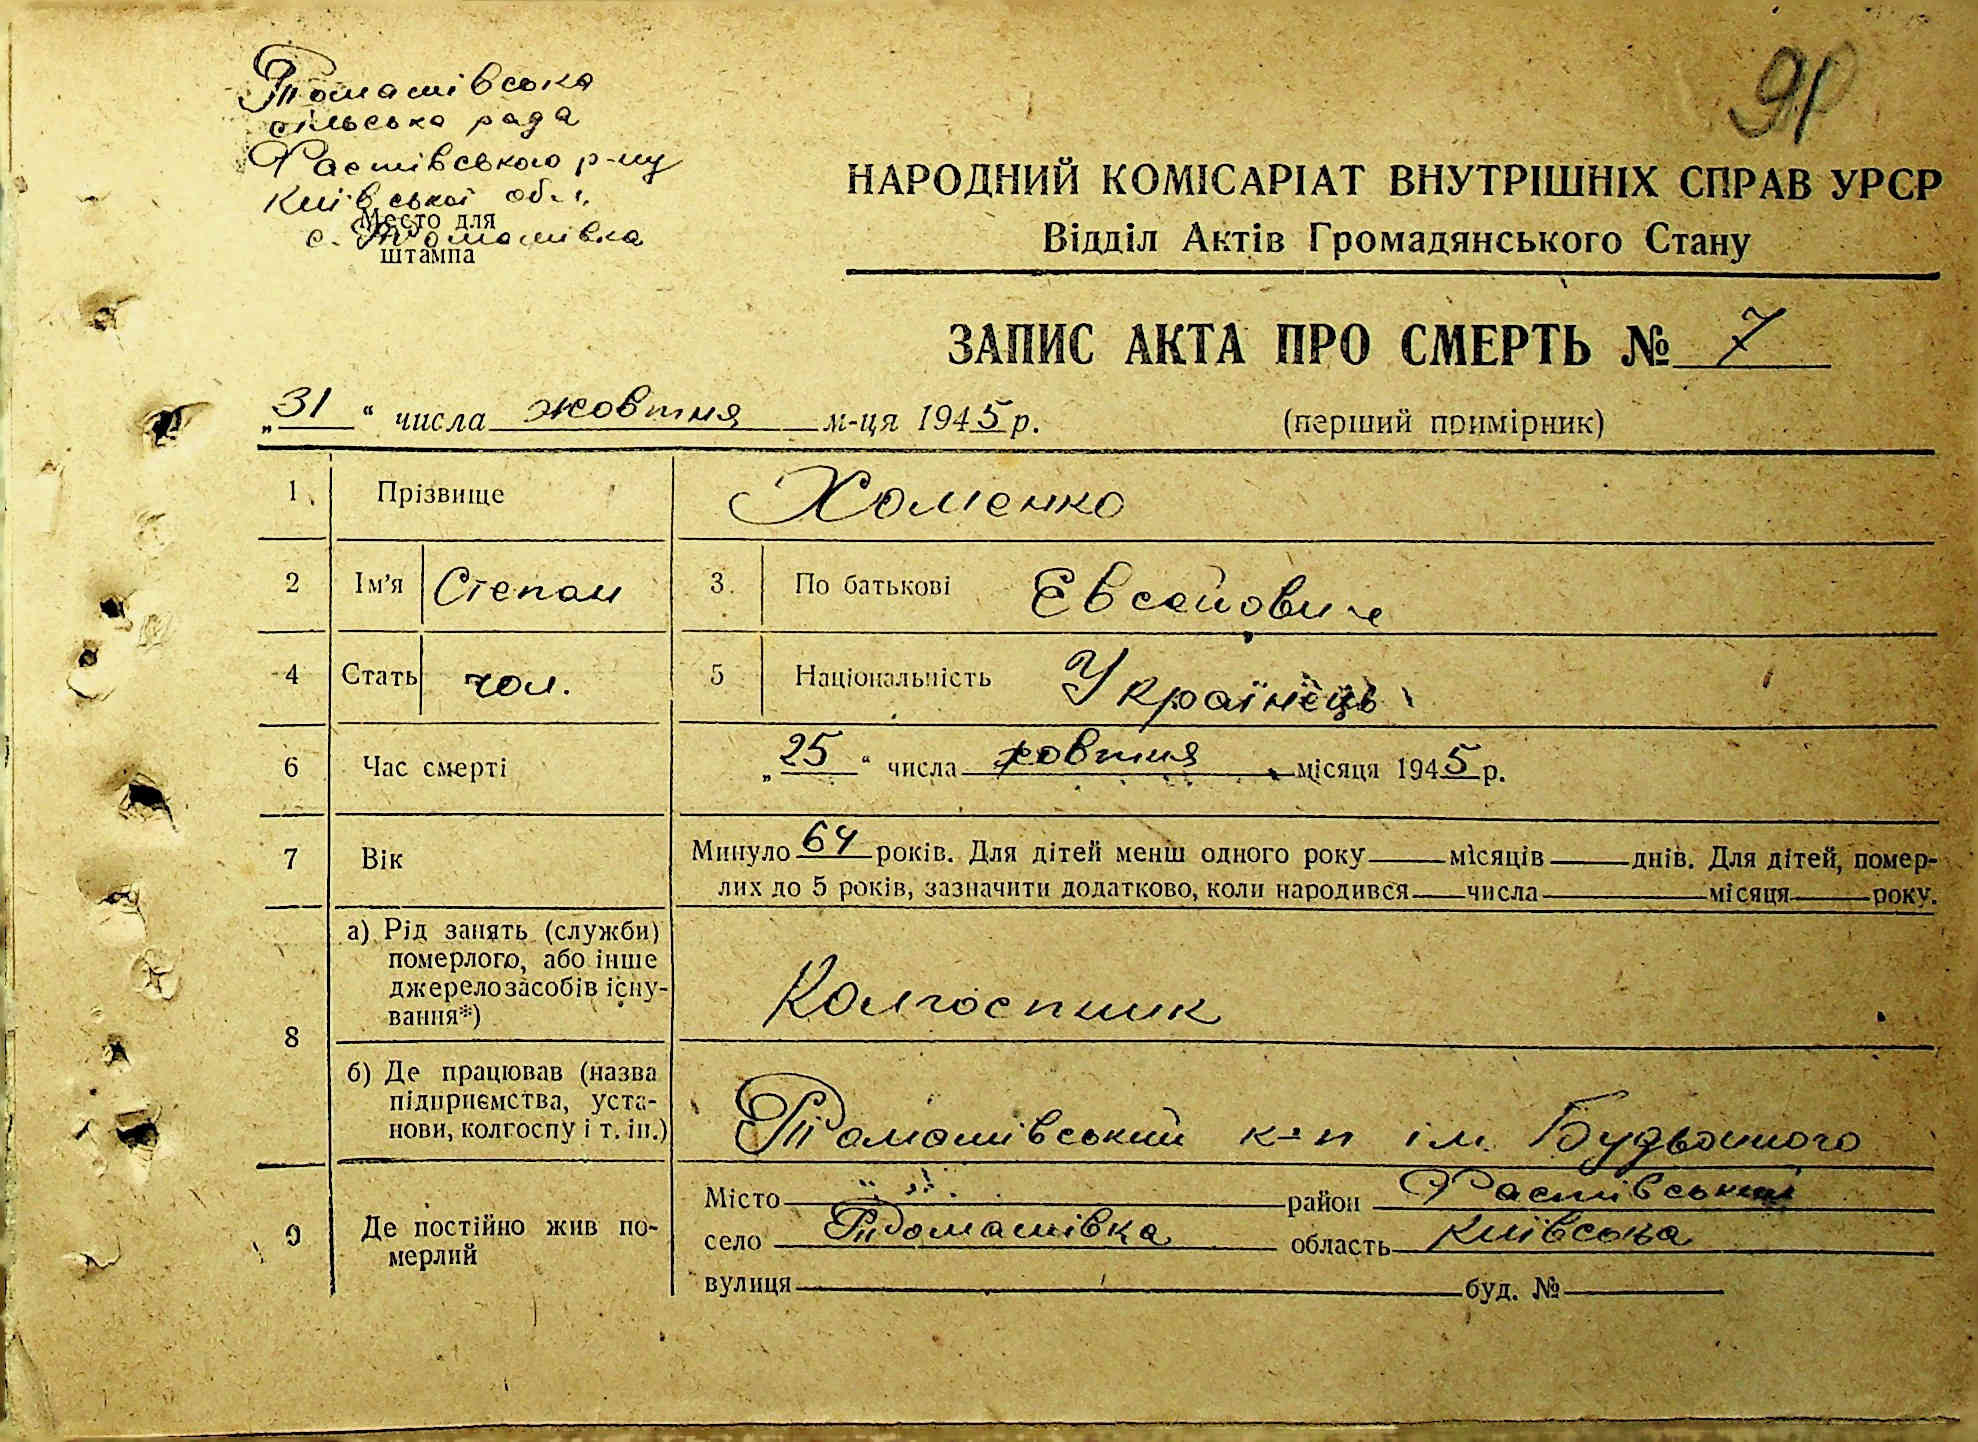 Томашівська
сільська рада
Фастівського р-ну
Київської обл.
Место для
с. Томашівка
штампа
91
НАРОДНИЙ КОМІСАРІАТ ВНУТРІШНІХ СПРАВ УРСР
Відділ Актів Громадянського Стану
ЗАПИС АКТА ПРО СМЕРТЬ № 7
„31“ числа жовтня м-ця 1945 р. (перший примірник)
1 Прізвище Хоменко
2 Ім'я Степан 3. По батькові Євсейович
4 Стать чол. 5 Національність Українець
6 Час смерті „25“ числа жовтня місяця 1945 р.
7 Вік Минуло 64 років. Для дітей менш одного року місяців днів. Для дітей, помер-
лих до 5 років, зазначити додатково, коли народився числа місяця року.
8 а) Рід занять (служби)
померлого, або інше
джерело засобів існу-
вання*) Колгоспник
б) Де працював (назва
підприємства, уста-
нови, колгоспу і т. ін.) Томашівський к-п ім. Будьонного
9 Де постійно жив по-
мерлий
Місто район Фастівський
село Томашівка область Київська
вулиця буд. №